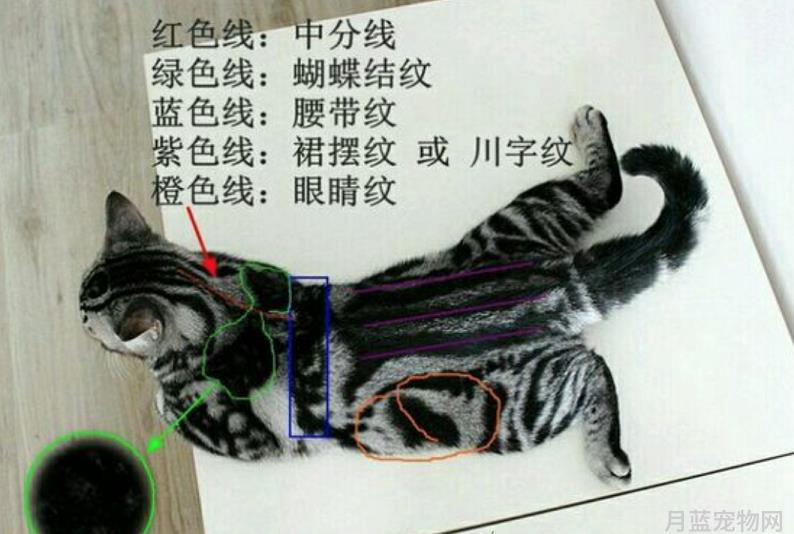 红色线：中分线
绿色线：蝴蝶结纹
蓝色线：腰带纹
紫色线：裙摆纹 或 川字纹
橙色线：眼睛纹
月蓝宠物网